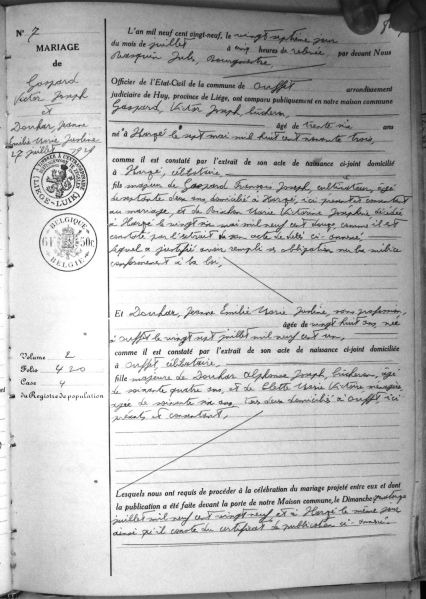 N° 7
MARIAGE
de
Gaspard
Victor Joseph
et
Dourhar, Jeanne
Emilie Marie Justine
27 juillet 1929
BELGIQUE
6 F 50c
BELGIE
Volume 2
Folio 420
Case 4
du Registre de population
L'an mil neuf cent vingt-neuf, le vingt septième jour
du mois de juillet à cinq heures de relevée, par devant Nous
Jules, Bourgmestre,
Officier de l'Etat-Civil de la commune de Ouffet arrondissement
judiciaire de Huy, province de Liége, ont comparu publiquement en notre maison commune
Gaspard, Victor Joseph,
âgé de trente six ans
né à Harzé le sept mai mil huit cent nonante trois,
comme il est constaté par l'extrait de son acte de naissance ci-joint domicilié
à Harzé, célibataire,
fils majeur de Gaspard François Joseph, cultivateur, âgé
de septante deux ans, domicilié à Harzé, ici présent et consentant
au mariage, et de Marie Victorine Joséphine décédée
à Harzé le vingt six mai mil neuf cent douze comme il est
constaté par l'extrait de son acte de décès ci-annexé
lequel a justifié avoir rempli ses obligation sur la milice
conformément à la loi,
Et Dourhar, Jeanne Emilie Marie Justine, sans profession,
âgée de vingt huit ans née
à Ouffet le vingt sept juillet mil neuf cent un,
comme il est constaté par l'extrait de son acte de naissance ci-joint domiciliée
à Ouffet, célibataire,
fille majeure de Dourhar Alphonse Joseph, âgé
de soixante quatre ans, et de Marie Victoire ménagère,
âgée de soixante six ans, tous deux domiciliés à Ouffet ici
présents et consentant,
Lesquels nous ont requis de procéder à la célébration du mariage projeté entre eux et dont
la publication a été faite devant la porte de notre Maison commune, le Dimanche
juillet mil neuf cent vingt neuf et à Harzé le même jour
ainsi qu'il conste du certificat de publication ci-annexé.